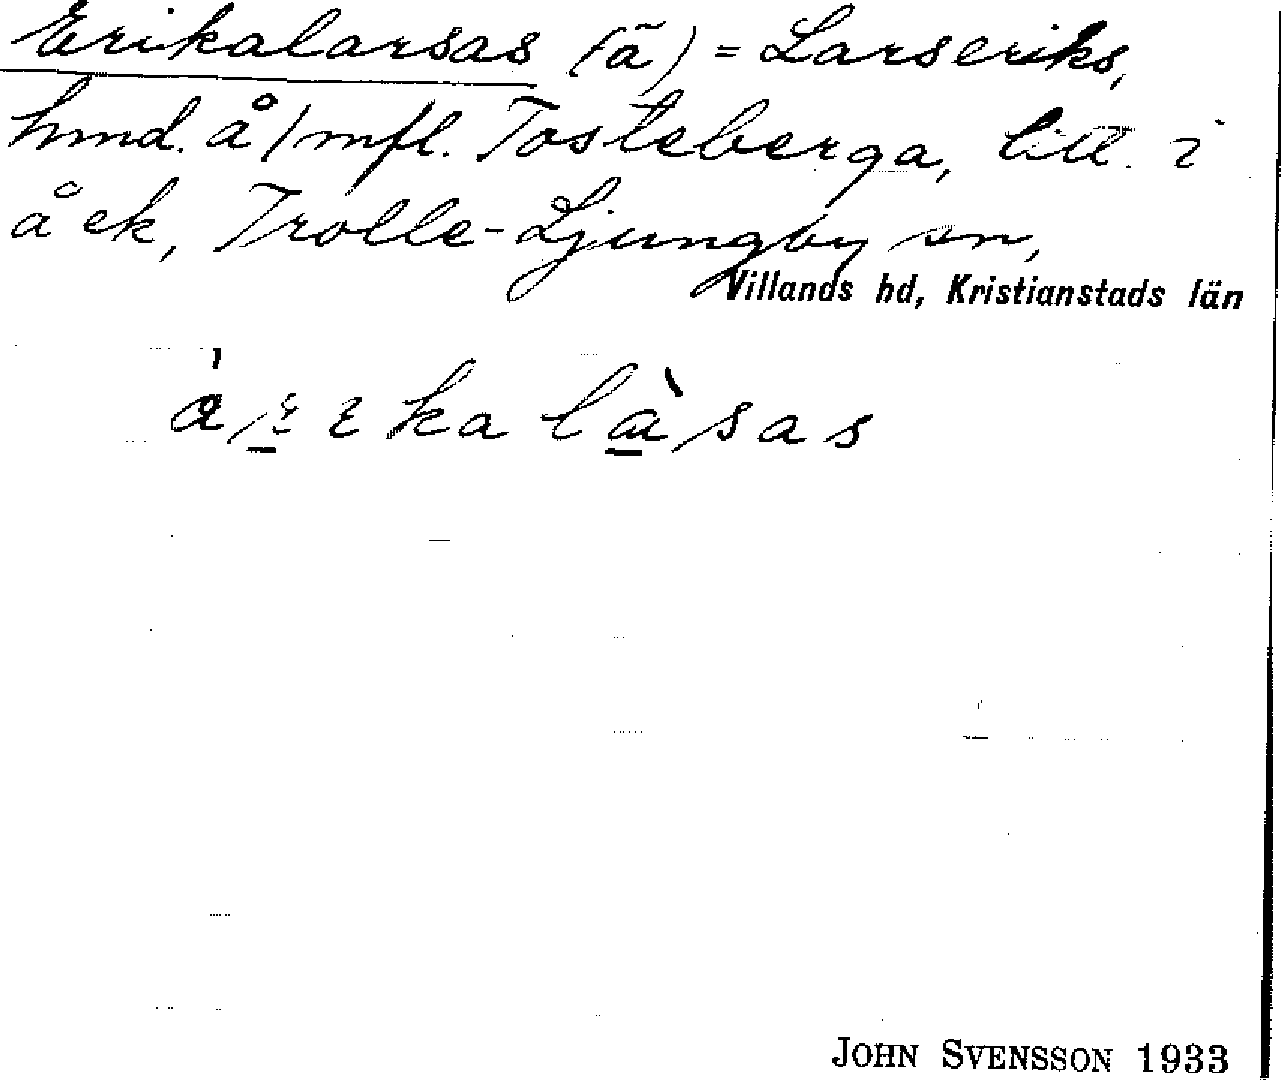 Erikalarsas (ã) = Larseriks,
hmd. å 1/ mfl. Tosteberga, till. i
å ek, Trolle-Ljungby sn,
Villands hd, Kristianstads län
JOHN SVENSSON 1933